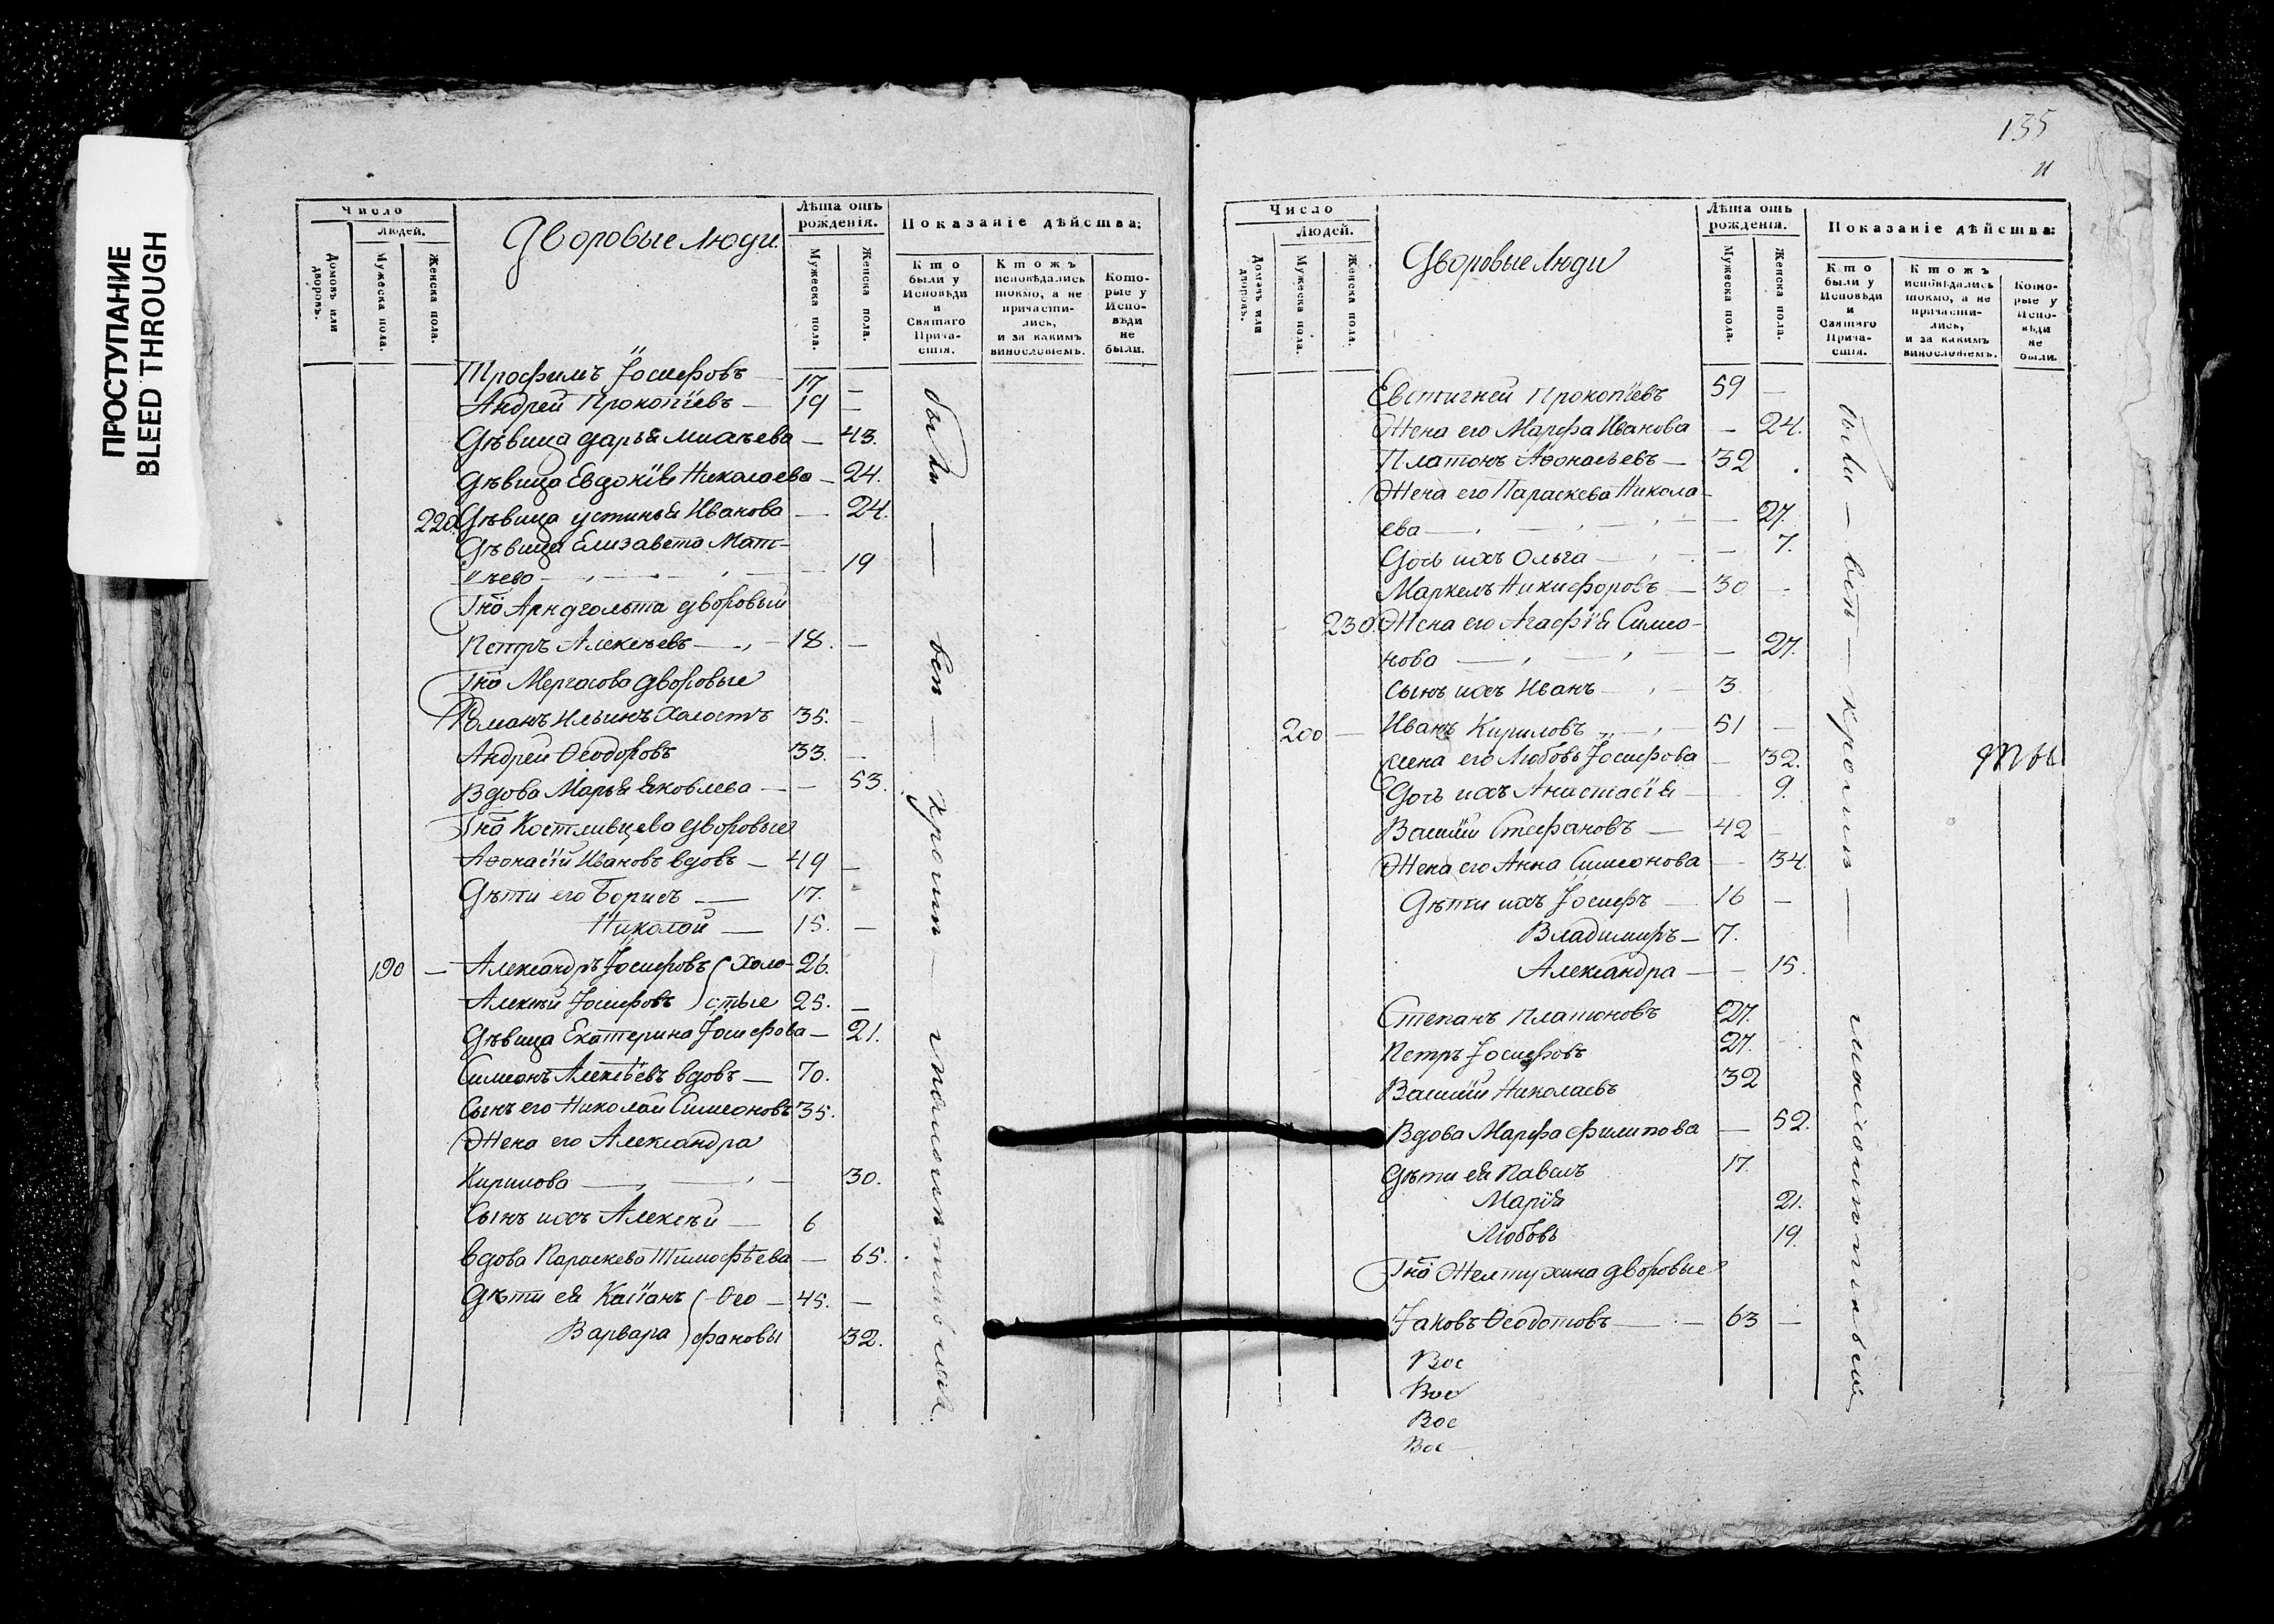 ПРОСТУПАНИЕ
BLEED THROUGH
Число
Людей.
Домовъ или дворовъ.
Мужеска пола.
Женска пола.
Дворовые люди
Лѣта отъ рожденія.
Мужеска пола.
Женска пола.
Показаніе дѣйства:
Кто были у Исповѣди и Святаго Прича-стія.
Ктожъ исповѣдались токмо, а не причасти-лись, и за какимъ винословіемъ.
Кото-рые у Испо-вѣди не были.
Трофимъ Іосифовъ — 17 —
Андрей Прокопіевъ — 19 —
Дѣвица Дарья — 43.
Дѣвица Евдокія Николаева — 24.
220. Дѣвица Устинья Иванова — 24.
Дѣвица Елизавета Мат-
ѣева — 19
Гна Арнгольта дворовый
Петръ Алексѣевъ — 18. —
Гна Мергасова дворовые
Романъ Ильинъ холостъ 35. —
Андрей Ѳеодоровъ 33. —
Вдова Марья Яковлева — 53.
Гна Костливцева дворовые
Аѳонасій Ивановъ вдовъ — 49 —
Дѣти его Борисъ — 17.
Николай — 15. —
190 — Александръ Іосифовъ ( холо- 26.
Алексѣй Іосифовъ ) стые 25. —
Дѣвица Екатерина Іосифова — 21.
Симеонъ Алексѣевъ вдовъ — 70.
Сынъ его Николай Симеоновъ 35.
Жена его Александра
Кирилова — 30.
Сынъ ихъ Алексѣй — 6
Вдова Параскева Тимофѣева — 65.
Дѣти ея Касіанъ ( Ѳео — 45. —
Варвара ) фановы 32.
были — всѣ — кромѣ —
135
Число
Людей.
Домовъ или дворовъ.
Мужеска пола.
Женска пола.
Дворовые люди
Лѣта отъ рожденія.
Мужеска пола.
Женска пола.
Показаніе дѣйства:
Кто были у Исповѣди и Святаго Прича-стія.
Ктожъ исповѣдались токмо, а не причасти-лись, и за какимъ винословіемъ.
Кото-рые у Испо-вѣди не были.
Евстигней Прокопіевъ 59 —
Жена его Марфа Иванова — 24.
Платонъ Аѳонасьевъ — 32
Жена его Параскева Никола-
ева — 27.
Дочь ихъ Ольга — 7.
Маркелъ Никифоровъ — 30 —
230. Жена его Агафія Симео-
нова — 27.
Сынъ ихъ Иванъ — 3.
200 — Иванъ Кириловъ — 51 —
Жена его Любовь Іосифова — 32.
Дочь ихъ Анастасія — 9.
Василій Стефановъ — 42 —
Жена его Анна Симеонова — 34.
Дѣти ихъ Іосифъ — 16 —
Владимиръ — 7.
Александра — 15.
Степанъ Платоновъ 27.
Петръ Іосифовъ 27. —
Василій Николаевъ 32
Вдова Марфа Филипова — 52.
Дѣти ея Павелъ 17.
Марія 21.
Любовь 19.
Гна Желтухина дворовые
Іаковъ Ѳеодотовъ — 63 —
Вос
Вос
Вос
Вос
были — всѣ — кромѣ —